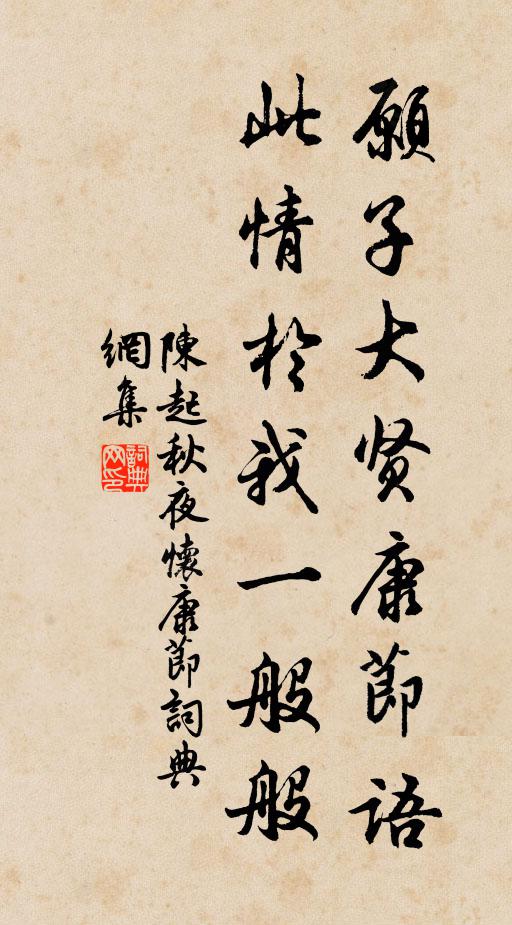 願子大贤康節語
此情於我一般般
陳起秋夜懷康節詞典
網集
詞典网印